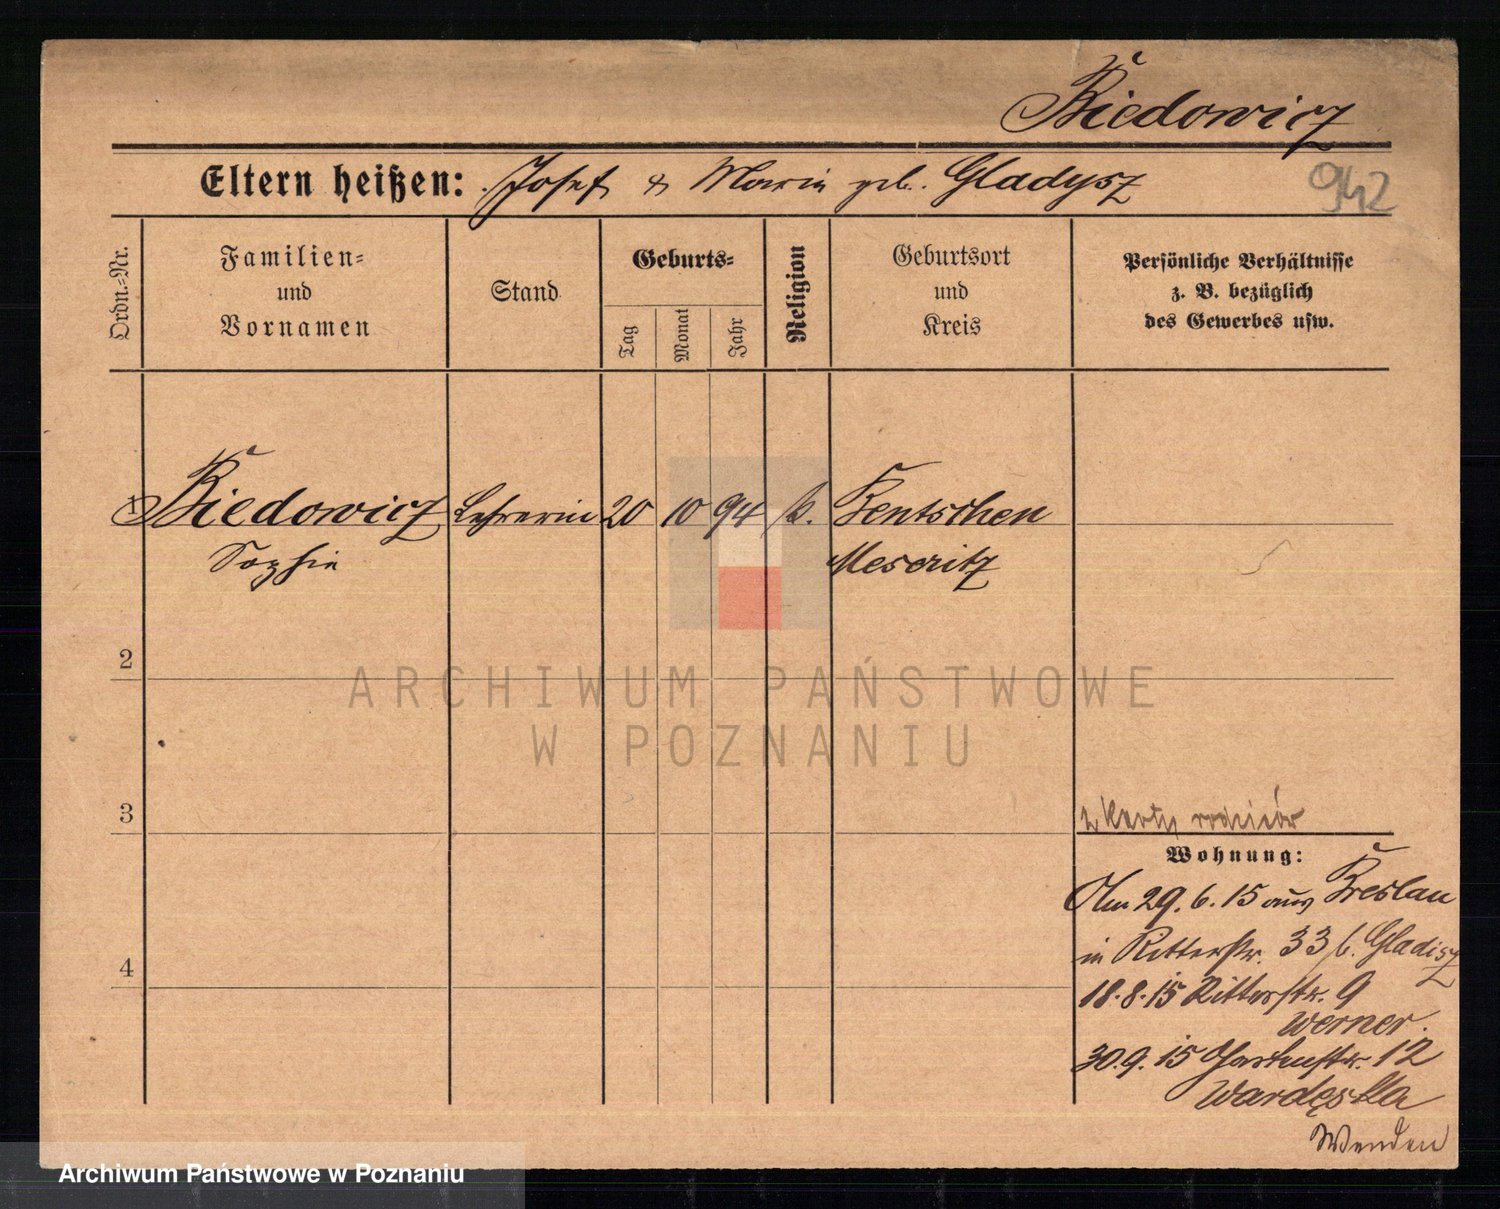 Biedowicz
Eltern heißen: Josef & Maria geb. Gladysz
942
Ordn.=Nr.
Familien=
und
Vornamen
Stand
Geburts=
Tag
Monat
Jahr
Religion
Geburtsort
und
Kreis
Persönliche Verhältnisse
z. B. bezüglich
des Gewerbes usw.
1 Biedowicz Lehrerin 20 10 94 k. Bentschen
Sophie Meseritz
2
ARCHIWUM PAŃSTWOWE
W POZNANIU
3
z karty rodziców
Wohnung:
Am 29.6.15 aus Breslau
in Ritterstr. 33 b. Gladisz
4
18.8.15 Ritterstr. 9
Werner.
30.9.15 Gartenstr. 12
Wardęska
Wenden
Archiwum Państwowe w Poznaniu